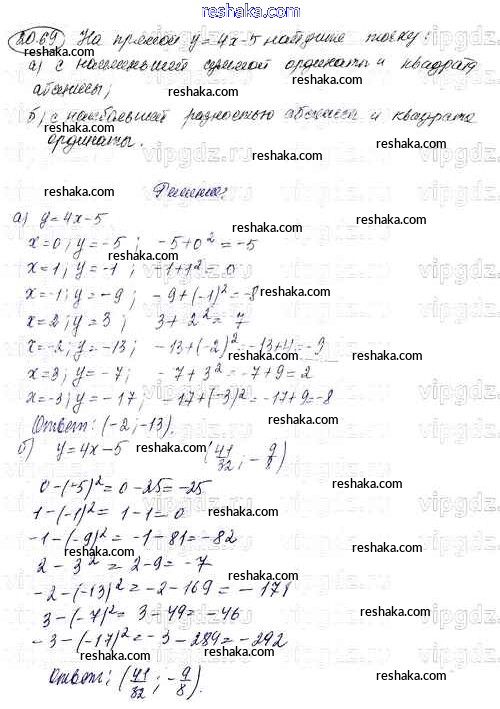 20.69 На прямой y=4x-5 найдите точку:
а) с наименьшей суммой ординаты и квадрата
абсциссы;
б) с наибольшей разностью абсциссы и квадрата
ординаты.
vipgdz.ru
reshaka.com
Решение:
reshaka.com
а) y=4x-5
reshaka.com
x=0; y=-5; -5+0²=-5
x=1; y=-1; -1+1²=0
reshaka.com
x=-1; y=-9; -9+(-1)²=-8
reshaka.com
x=2; y=3; 3+2²=7
reshaka.com
x=-2; y=-13; -13+(-2)²=-13+4=-9
x=3; y=-7; -7+3²=-7+9=2
reshaka.com
x=-3; y=-17; -17+(-3)²=-17+9=-8
reshaka.com
Ответ: (-2; -13).
reshaka.com
б) y=4x-5 reshaka.com (41/32; -9/8)
0-(-5)²=0-25=-25
reshaka.com
1-(-1)²=1-1=0
reshaka.com
-1-(-9)²=-1-81=-82
2-3²=2-9=-7
reshaka.com
-2-(-13)²=-2-169=-171
3-(-7)²=3-49=-46
reshaka.com
-3-(-17)²=-3-289=-292
reshaka.com
Ответ: (41/32; -9/8).
reshaka.com